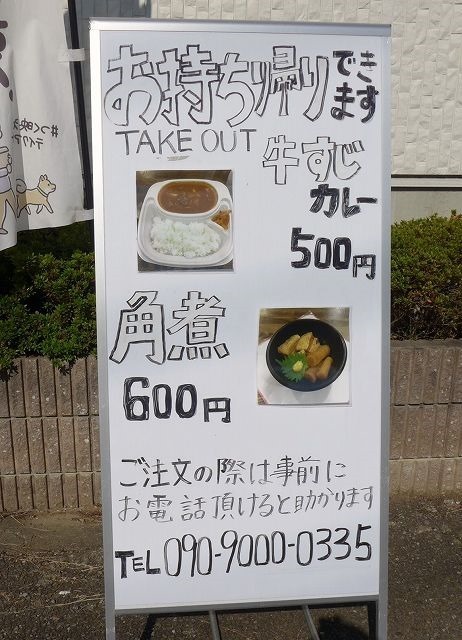 お持ち帰りできます
TAKE OUT
牛すじ
カレー
500円
角煮
600円
ご注文の際は事前に
お電話頂けると助かります
TEL 090-9000-0335
#つく映え
テイクア